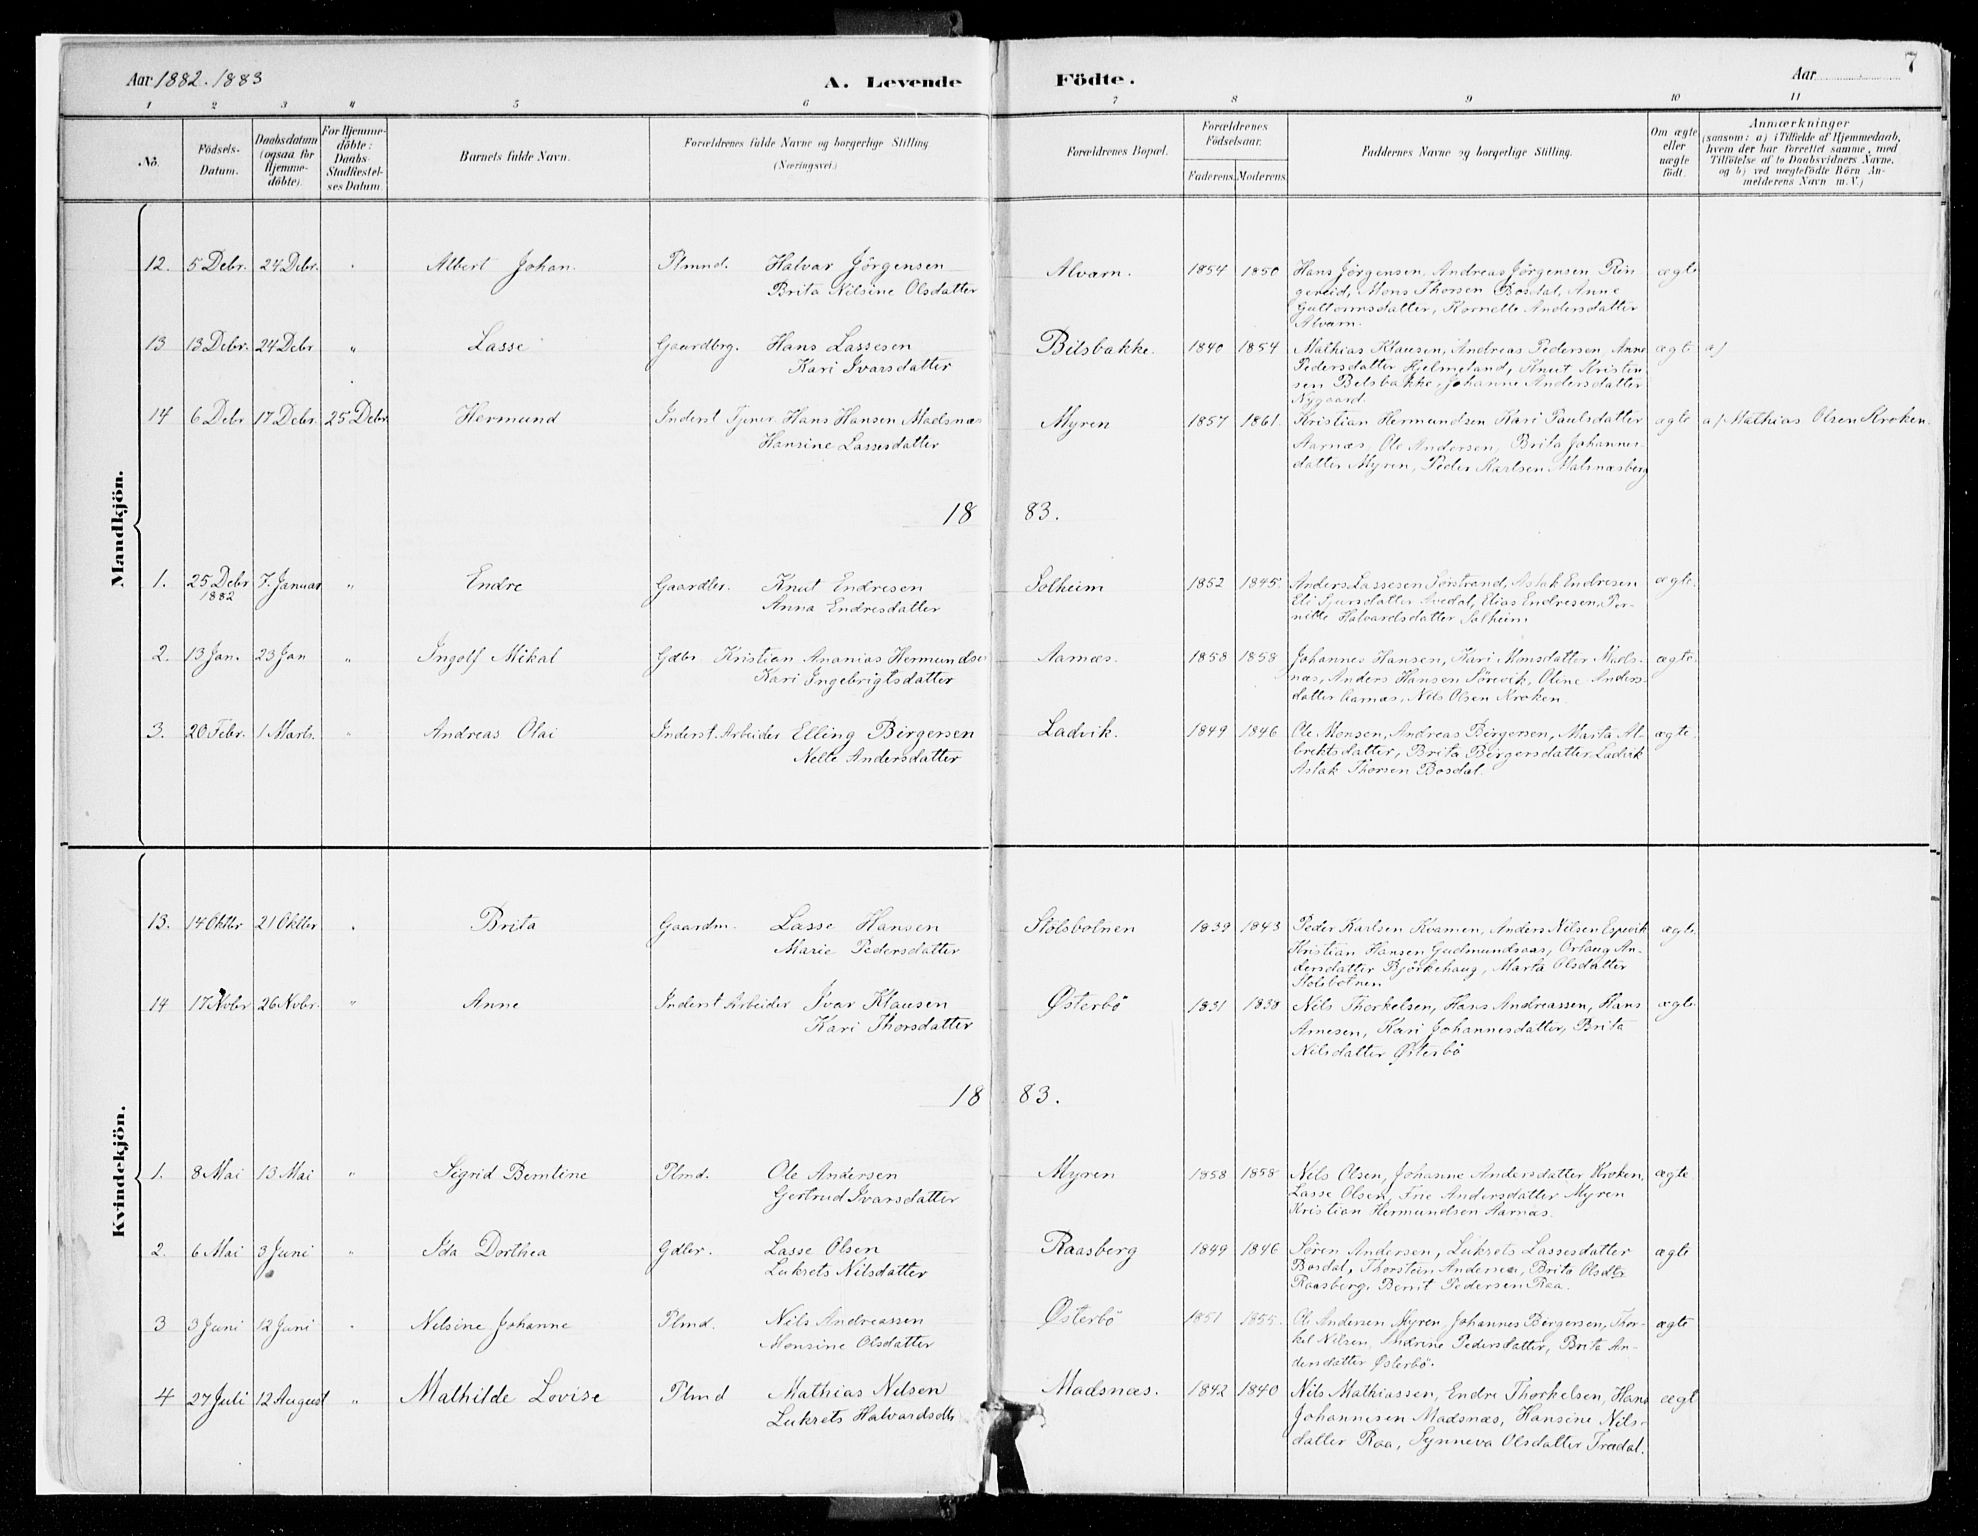 Aar 1882. 1883
A. Levende Födte.
Aar
7
1 2 3 4 5 6 7 8 9 10 11
No. Födsels-Datum. Daabsdatum (ogsaa for Hjemmedöbte). For Hjemmedöbte: Daabs-Stadfæstelses Datum. Barnets fulde Navn. Forældrenes fulde Navne og borgerlige Stilling (Næringsvei.) Forældrenes Bopæl. Forældrenes Födselsaar. Faderens. Moderens. Faddernes Navne og borgerlige Stilling. Om ægte eller uægte födt. Anmærkninger
(saasom: a) i Tilfælde af Hjemmedaab,
hvem der har forrettet samme, med
Tilföielse af to Daabsvidners Navne.
og b) ved uægtefödte Börn An-
melderens Navn m. V.)
Mandkjön.
12. 5 Debr. 24 Debr. Albert Johan. Plmnd. Halvar Jörgensen Alværn. 1854 1850 Hans Jörgensen, Andreas Jörgensen Rin- ægte
Brita Nilsine Olsdatter gereid, Mons Thorsen Bosdal, Anne
Guttormsdatter, Kornelle Andersdatter
Alværn.
13 13 Debr. 24 Debr " Lasse Gaardbrg. Hans Lassesen Bilsbakke. 1840 1854 Mathias Klausen, Andreas Pedersen, Anne ægte a)
Kari Ivarsdatter Pedersdatter Hjelmeland, Knut Kristen-
sen Bilsbakke, Johanne Andersdatter
Nygaard.
14 6 Debr 17 Debr. 25 Debr Hermund Inderst Tjener Hans Hansen Madsnæs Myren 1857 1861. Kristian Hermundsen Kari Paulsdatter ægte a) Mathias Olsen Kroken.
Hansine Lassesdatter Aarnæs, Ole Andersen, Brita Johannes-
datter Myren, Peder Karlsen Matsnæsberg
18 83.
1. 25 Debr 1882 7. Januar " Endre Gaardbr. Knut Endresen Solheim 1852 1845. Anders Lassesen Sörstrand, Aslak Endresen ægte.
Anna Endresdatter Eli Sjursdatter Avedal, Elias Endresen, Per-
nille Halvardsdatter Solheim
2. 13 Jan. 23 Jan " Ingolf Mikal Gdbr. Kristian Ananias Hermundse Aarnæs. 1858 1858 Johannes Hansen, Kari Monsdatter Mads- ægte.
Kari Ingebrigtsdatter næs, Anders Hansen Sörevik, Oline Anders-
datter Aarnæs, Nils Olsen Kroken
3. 20 Febr. 1 Marts. " Andreas Olai Inderst. Arbeider Elling Birgersen Ladvik. 1849 1846 Ole Monsen, Andreas Birgersen, Marta Al- ægte.
Nelle Andersdatter brektsdatter, Brita Birgersdatter Ladvik
Aslak Thorsen Bosdal.
Kvindekjön.
13. 14 Oktbr 21 Oktbr. Brita Gaardm. Lasse Hansen Stolsbotnen 1839 1843 Peder Karlsen Kvamen, Anders Nilsen Espevik ægte
Marie Pedersdatter Kristian Hansen Gudmundsaas, Orlaug An-
dersdatter Björkehaug, Marta Olsdatter
Stolsbotnen
14 17 Novbr 26 Novbr. " Anne Inderst Arbeider Ivar Klausen Østerbö 1831 1838 Nils Thorkelsen, Hans Andreassen, Hans ægte
Kari Thorsdatter Arnesen, Kari Johannesdatter, Brita
Nilsdatter Østerbö
18 83.
1. 8 Mai 13 Mai " Sigrid Bemtine Plmd. Ole Andersen Myren 1858 1858 Nils Olsen, Johanne Andersdatter Kroken, ægte
Gertrud Ivarsdatter Lasse Olsen, Frie Andersdatter Myren
Kristian Hermundsen Aarnæs.
2. 6 Mai 3 Juni " Ida Dorthea Gdbr. Lasse Olsen Raasberg 1849 1846 Sören Andersen, Lukrets Lassesdatter ægte
Lukrets Nilsdatter Bosdal, Thorstein Andersen, Brita Olsdtr
Raasberg, Bernt Pedersen Raa.
3 3 Juni 12 Juni " Nilsine Johanne Plmd. Nils Andreassen Østerbö 1851 1855. Ole Andersen Myren, Johannes Birgersen, Thor- ægte
Monsine Olsdatter kel Nilsen, Andrine Pedersdatter, Brita An-
dersdatter Østerbö.
4 27 Juli 12 August " Mathilde Lovise Plmd Mathias Nilsen Madsnæs. 1842 1840 Nils Mathiassen, Endre Thorkelsen, Hans ægte
Lukrets Halvardsdtr Johannesen Madsnæs, Hansine Nils-
datter Raa, Synneva Olsdatter Tredal.